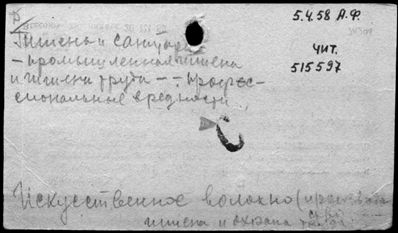 5.4.58 А.Ф.
Гигиена и санитар
- промышленная гигиена
и гигиена труда - - професс-
сиональные вредности.
ЧИТ.
515597
Искусственное волокно (производство
гигиена и охрана